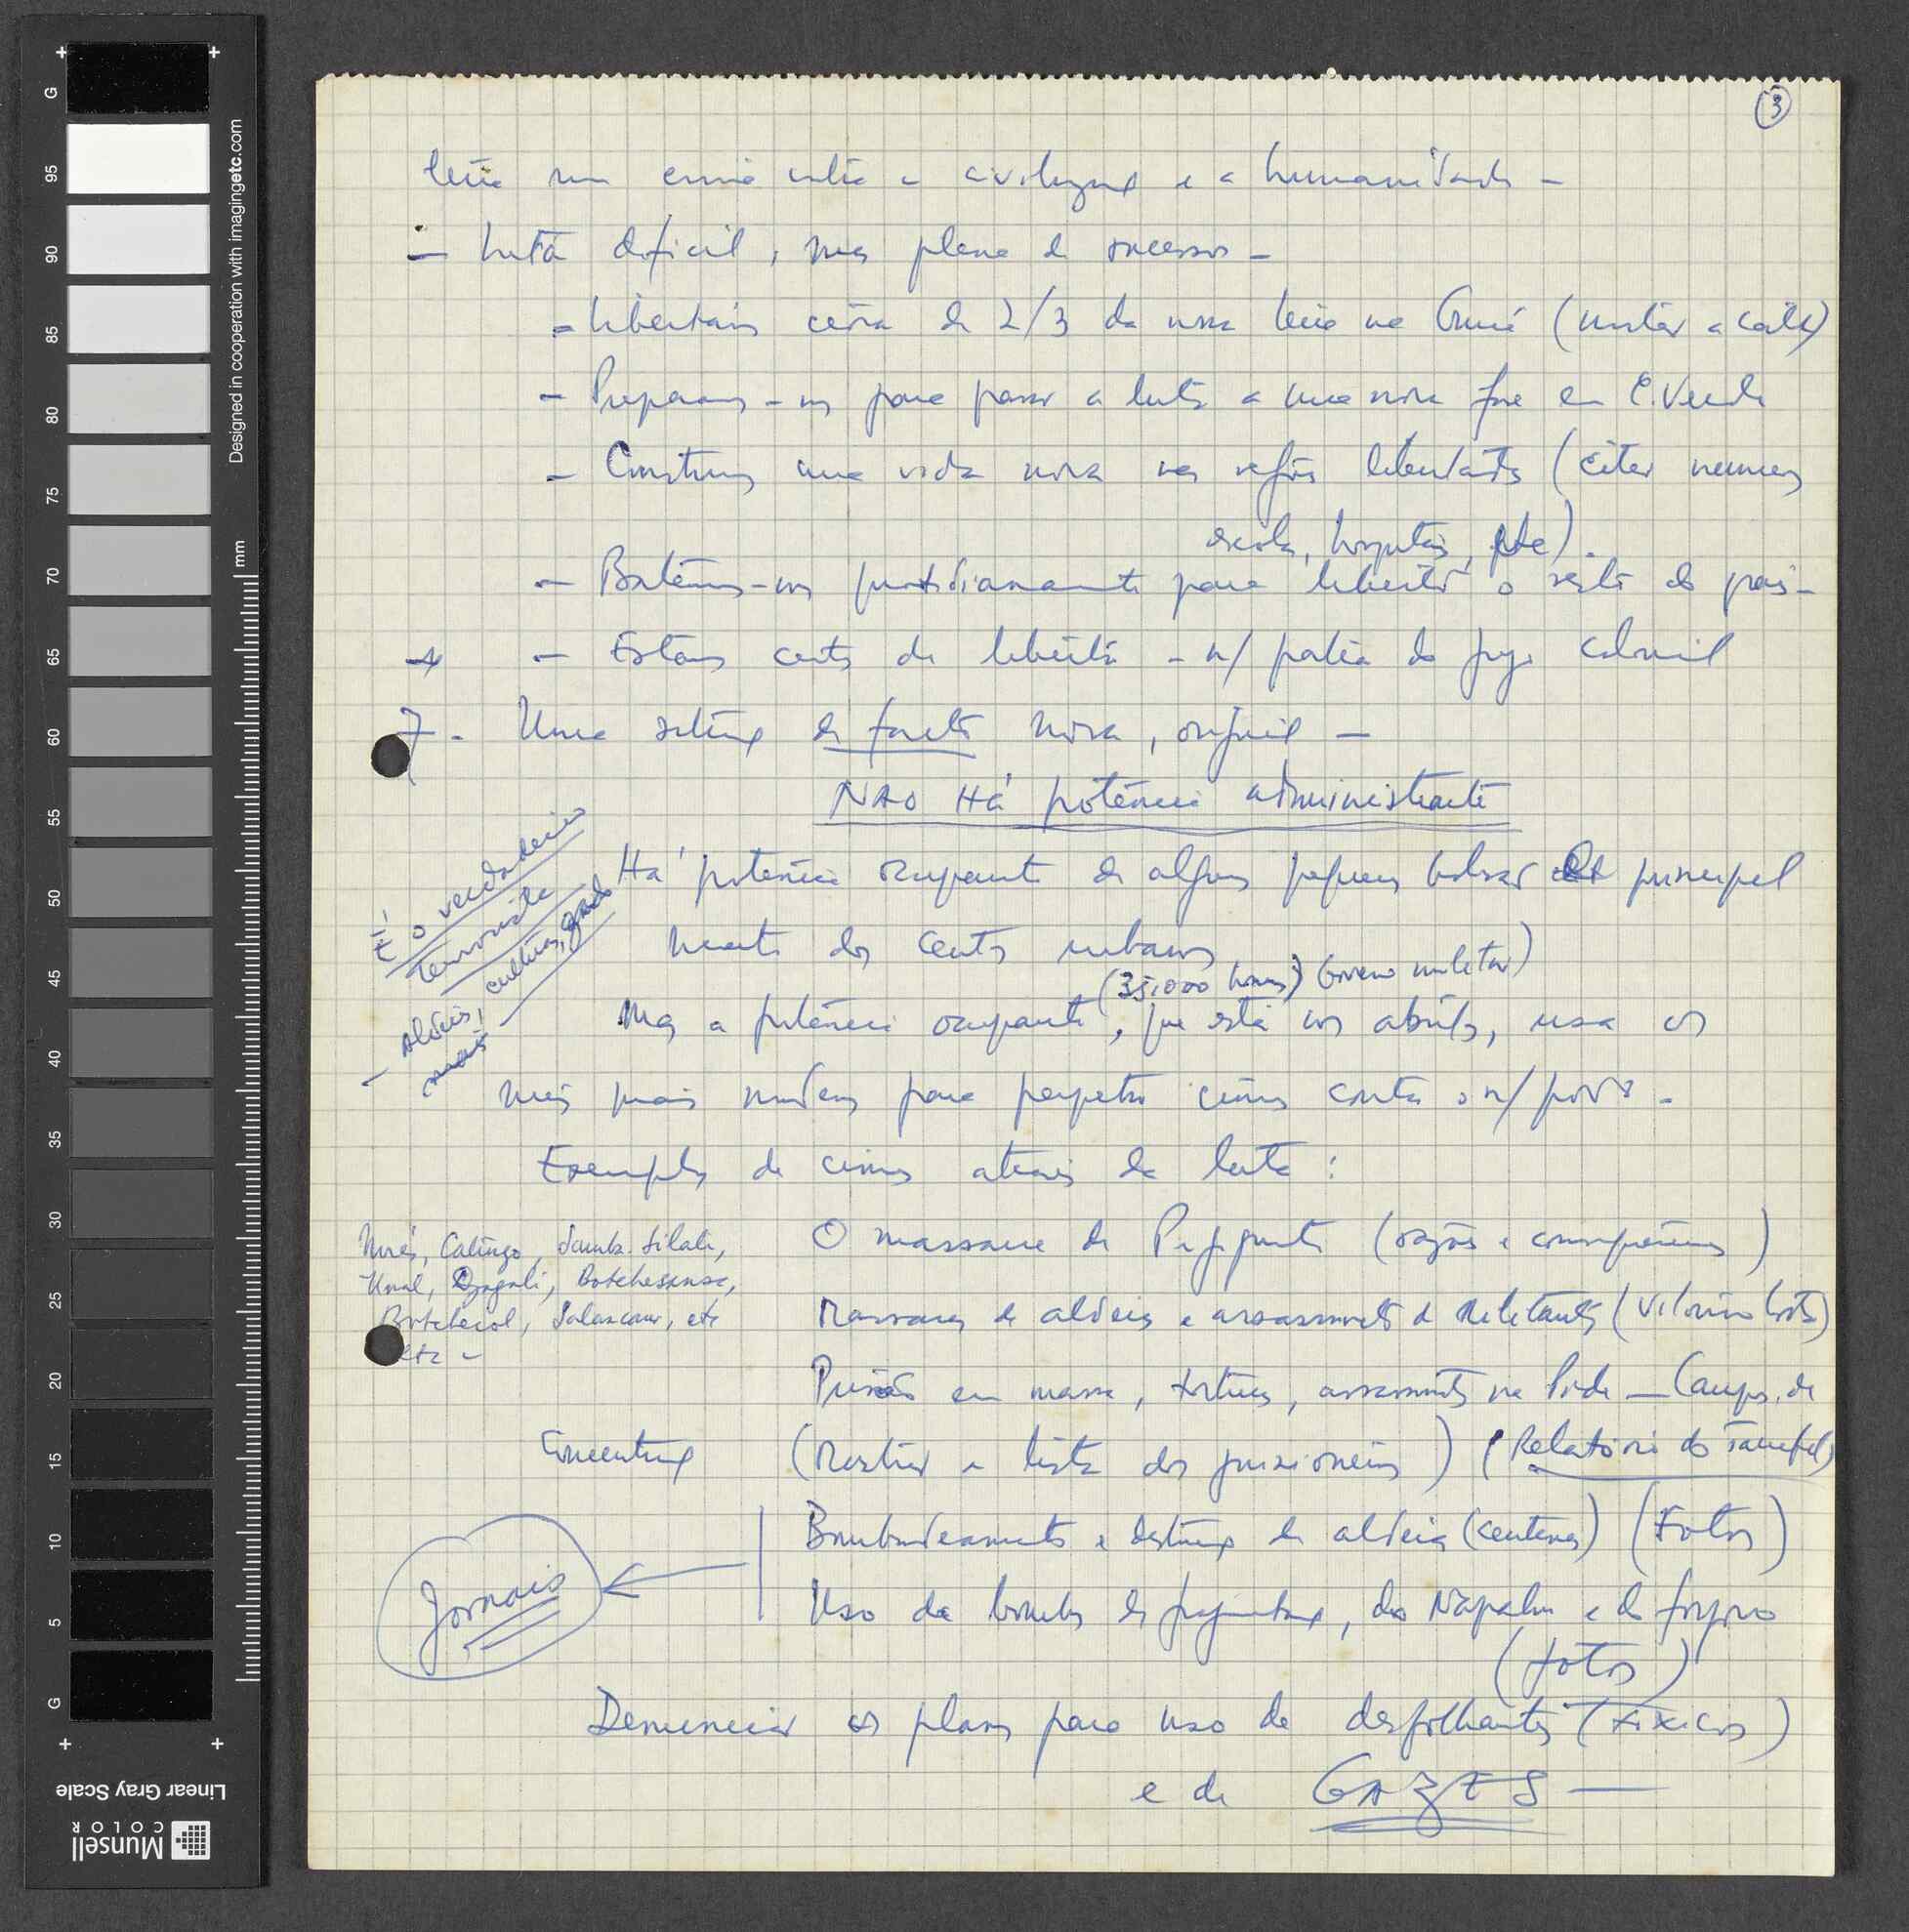 3
um crime contra a civilização e a humanidade -
- Luta difícil, mas plena de sucessos -
- Libertámos cerca de 2/3 da nossa terra na Guiné (mostrar a carta)
- Preparamo-nos para passar a luta a uma nova fase em C. Verde
- Construimos uma vida nova nas regiões libertadas (citar números
escolas, hospitais, etc).
- Batemo-nos quotidianamente para libertar o resto do país -
- Estamos certos de libertar a n/ pátria do jugo colonial
7 - Uma situação de facto nova, original -
NÃO HÁ potência administrante
Há potência ocupante de alguns pequenos principal
mente dos centros urbanos
(35.000 homens) Governo militar)
Mas a potência ocupante, que está nos, usa os
meios mais modernos para perpetrar crimes contra o n/ povo -
É o verdadeiro
terrorista
- Aldeias, culturas, gado
Exemplos de crimes através da luta:
O massacre de Pijiguiti (razões e consequências)
Morés, Catungo, Samba Silate,
Unal, Djagali, Botchesansa,
Botchecol, Salancaur, etc
etc -
Massacres de aldeias e assassinato de militantes (Vitorino Costa)
Prisão em massa, torturas, assassinatos na Pide - Campos de
Concentração (Mostrar a lista dos prisioneiros) (Relatório do Tarrafal)
Bombardeamento e destruição de aldeias (centenas) (Fotos)
Jornais
Uso de bombas de fragmentação, do Napalm e do fósforo
(fotos)
Denunciar os planos para uso de desfolhantes (tóxicos)
e de GAZES -
G
95
90
85
80
75
70
65
60
55
50
45
40
35
30
25
20
15
10
5
G
mm
Designed in cooperation with imagingetc.com
Linear Gray Scale
Munsell
COLOR